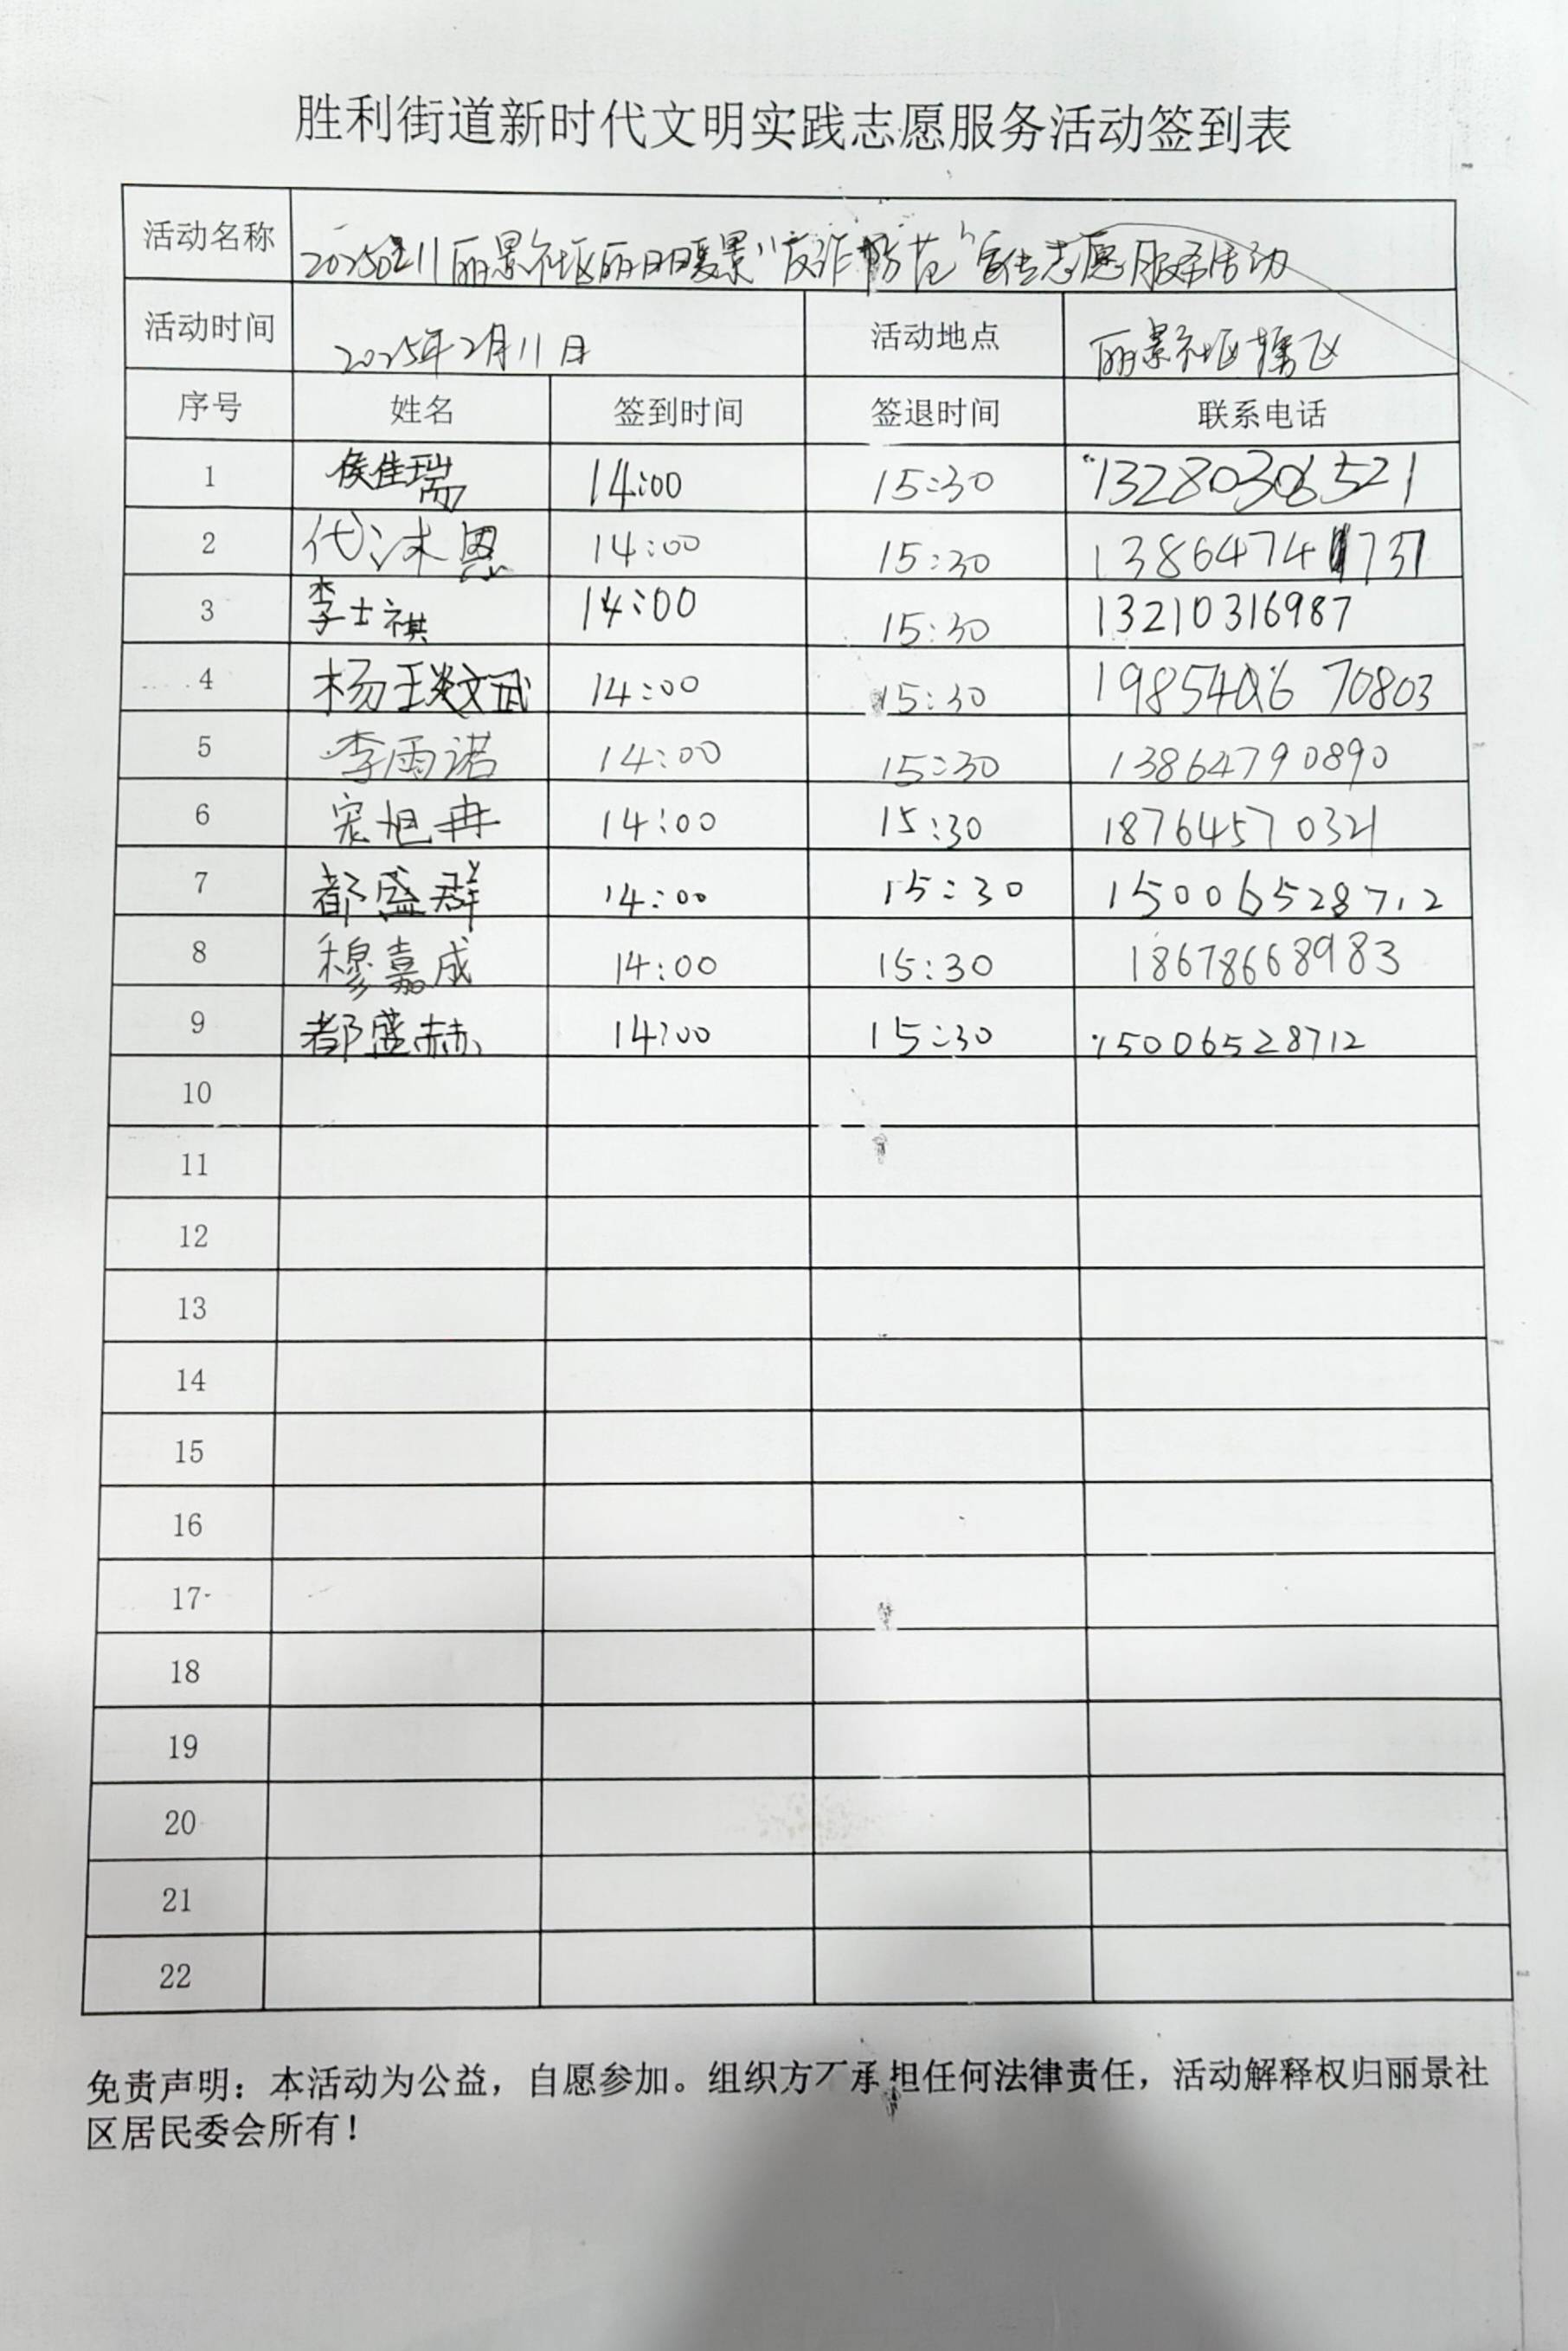 胜利街道新时代文明实践志愿服务活动签到表
活动名称 丽景社区 暖景"反诈防范"宣传志愿服务活动
活动时间 2025年2月11日 活动地点 丽景社区辖区
序号 姓名 签到时间 签退时间 联系电话
1 侯佳瑞 14:00 15:30 13280306521
2 代沐恩 14:00 15:30 1386474 1731
3 李士祺 14:00 15:30 13210316987
4 杨 文武 14:00 15:30 70803
5 李雨诺 14:00 15:30 13864790890
6 旭冉 14:00 15:30 18764570321
7 都盛群 14:00 15:30 15006528712
8 穆嘉成 14:00 15:30 18678668983
9 都盛赫 14:00 15:30 15006528712
10
11
12
13
14
15
16
17
18
19
20
21
22
免责声明：本活动为公益，自愿参加。组织方不承担任何法律责任，活动解释权归丽景社
区居民委会所有！